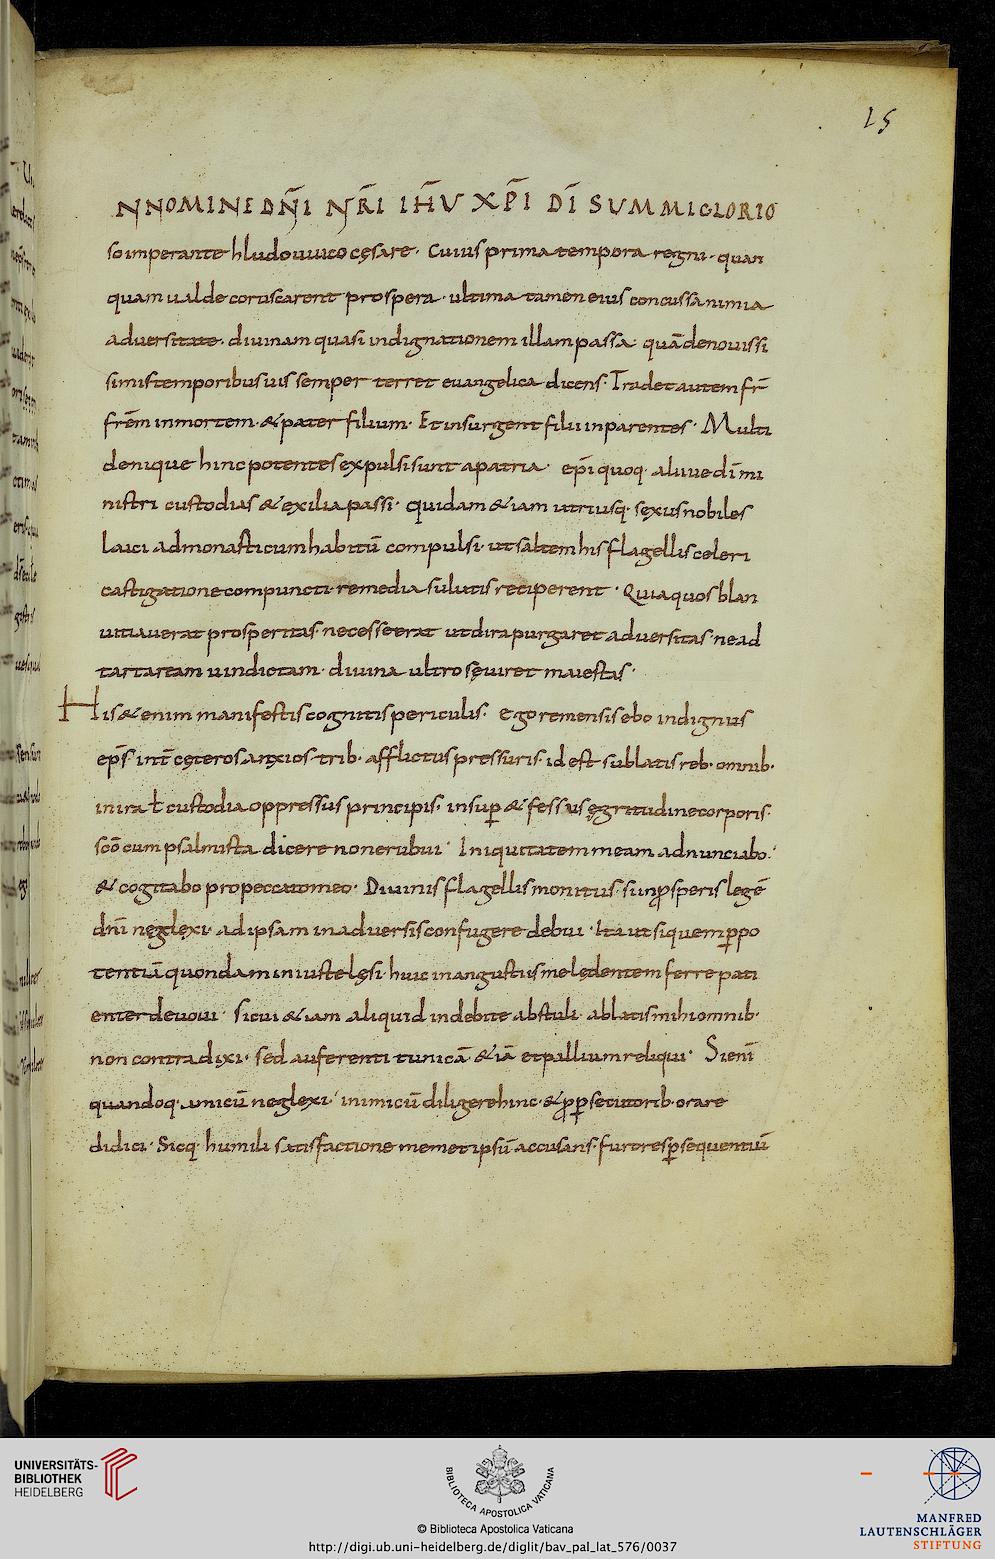 15
NNOMINE DÑI NR̄I IH̄U XP̄I DĪ SUMMI GLORIO
so imperante hludouuico cęsare · Cuius prima tempora regni · quan
quam ualde coruscarent prospera · ultima tamen eius concussa nimia
aduersitate · diuinam quasi indignationem illam passa · quā de nouissi
simis temporibus uis semper terret euangelica dicens · Tradet autem fr̄
fr̄em in mortem · & pater filium · Et insurgent filii in parentes · Multi
denique hinc potentes expulsi sunt a patria · ep̄i quoq · aliiue dī mi
nistri custodias & exilia passi · quidam & iam utriusq · sexus nobiles
laici ad monasticum habitū compulsi · ut saltem his flagellis celeri
castigatione compuncti remedia salutis reciperent · Quia quos blan
uitiauerat prosperitas · necesse erat ut dira purgaret aduersitas · ne ad
tartaream uindictam · diuina ultro sęuiret maiestas ·
His & enim manifestis cognitis periculis · Ego remensis ebo indignus
ep̄s int̄ cęteros anxios trib · afflictus pressuris · id est sublatis reb · omnib ·
in ira ł custodia oppressus principis · insup̱ & fessus ęgritudine corporis ·
sc̄o cum psalmista dicere non erubui · Iniquitatem meam adnunciabo ·
& cogitabo pro peccato meo · Diuinis flagellis monitus · si in ꝓsperis legē
dn̄i neglexi · ad ipsam in aduersis confugere debui · Ita ut si quem ꝑ po
tentiā quondam iniuste lęsi · huic in angustiis me lędentem ferre pati
enter deuoui · Sicui & iam aliquid indebite abstuli · ablatis mihi omnib ·
non contradixi · sed auferenti tunicā · & iā et pallium reliqui · Si enī
quandoq · amicū neglexi · inimicū diligere hinc · & ꝓ ꝑsecutorib · orare
didici · Sicq · humili satisfactione memet ipsū accusans · furores ꝑsequentiū
UNIVERSITÄTS-
BIBLIOTHEK
HEIDELBERG
BIBLIOTECA APOSTOLICA VATICANA
© Biblioteca Apostolica Vaticana
http://digi.ub.uni-heidelberg.de/diglit/bav_pal_lat_576/0037
MANFRED
LAUTENSCHLÄGER
STIFTUNG